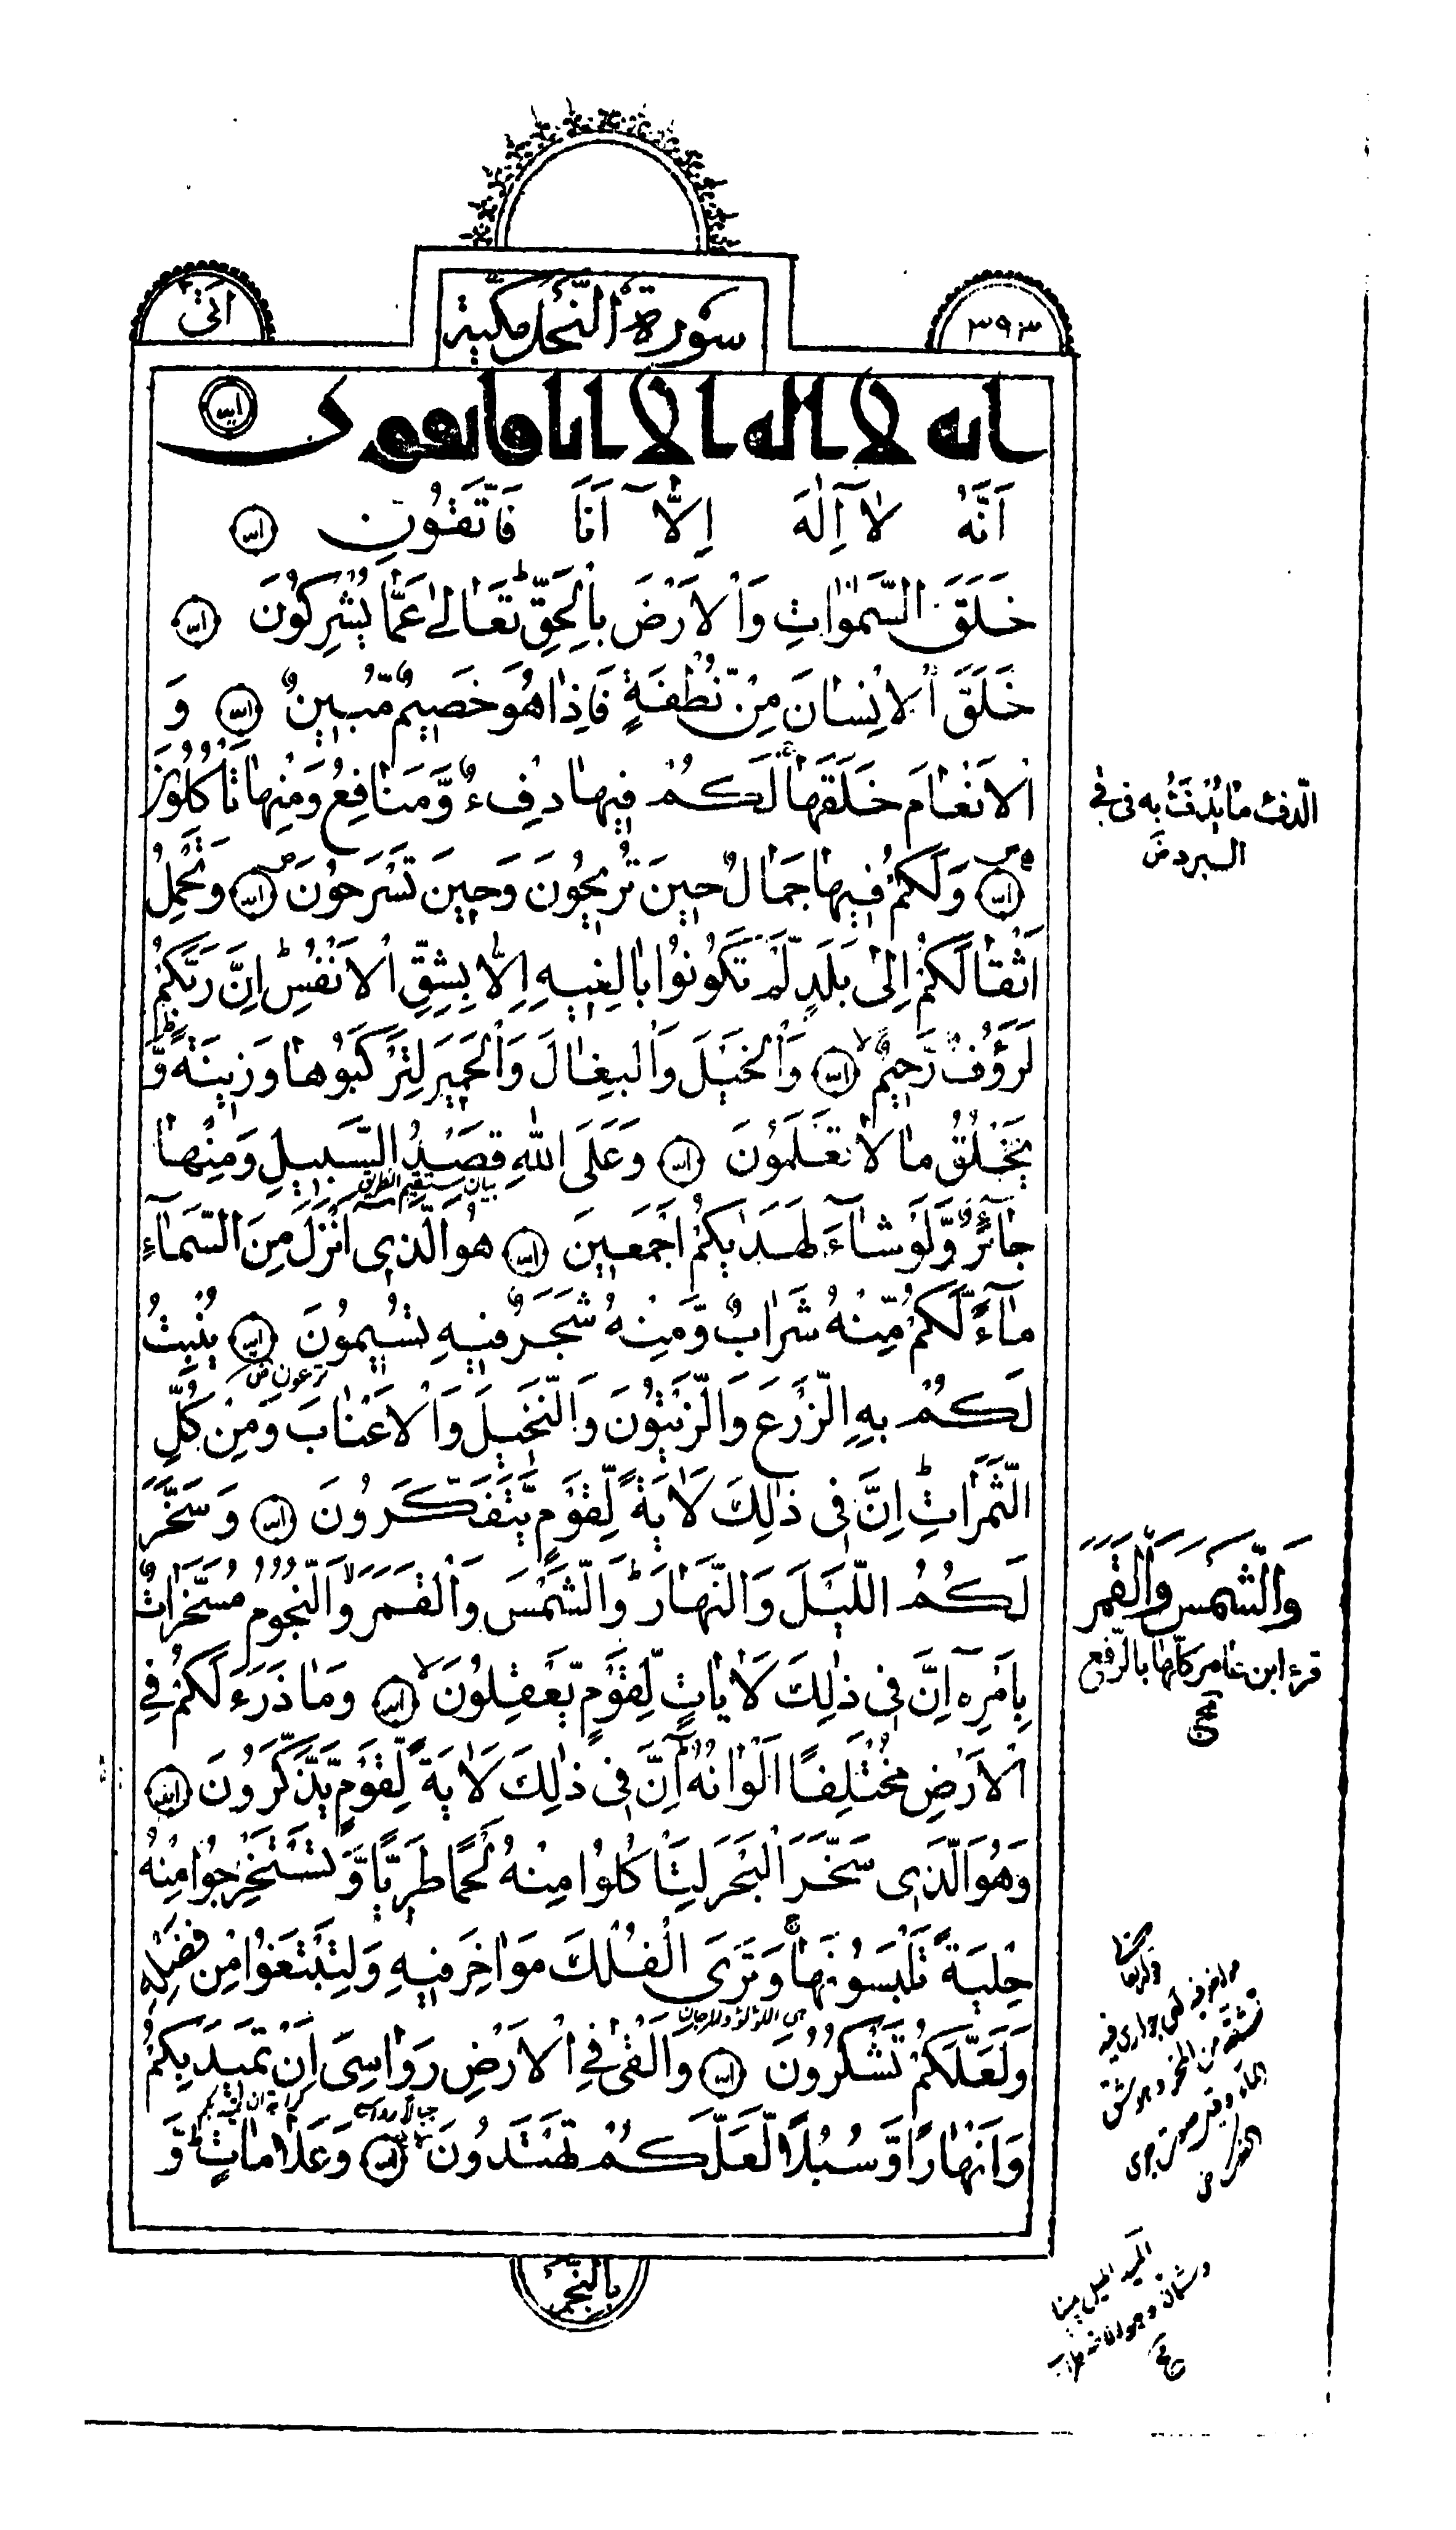 ٣٩٣
سُورَةُ النَّحْلِ مَكِّيَّة
اَتٰى
انه لا اله الا انا فاتقون
اَنَّهُ لَآ اِلٰهَ اِلَّآ اَنَا فَاتَّقُونِ
خَلَقَ السَّمٰوَاتِ وَالْاَرْضَ بِالْحَقِّ تَعَالٰى عَمَّا يُشْرِكُونَ
خَلَقَ الْاِنْسَانَ مِنْ نُّطْفَةٍ فَاِذَا هُوَ خَصِيمٌ مُّبِينٌ وَ
الْاَنْعَامَ خَلَقَهَا لَكُمْ فِيهَا دِفْءٌ وَّمَنَافِعُ وَمِنْهَا تَاْكُلُونَ
وَلَكُمْ فِيهَا جَمَالٌ حِينَ تُرِيحُونَ وَحِينَ تَسْرَحُونَ وَتَحْمِلُ
اَثْقَالَكُمْ اِلٰى بَلَدٍ لَّمْ تَكُونُوا بَالِغِيهِ اِلَّا بِشِقِّ الْاَنْفُسِ اِنَّ رَبَّكُمْ
لَرَؤُفٌ رَّحِيمٌ وَالْخَيْلَ وَالْبِغَالَ وَالْحَمِيرَ لِتَرْكَبُوهَا وَزِينَةً وَّ
يَخْلُقُ مَا لَا تَعْلَمُونَ وَعَلَى اللّٰهِ قَصْدُ السَّبِيلِ وَمِنْهَا
بيان مستقيم الطريق
جَآئِرٌ وَّلَوْ شَآءَ لَهَدٰيكُمْ اَجْمَعِينَ هُوَ الَّذِى اَنْزَلَ مِنَ السَّمَآءِ
مَآءً لَّكُمْ مِّنْهُ شَرَابٌ وَّمِنْهُ شَجَرٌ فِيهِ تُسِيمُونَ يُنْبِتُ
ترعون ض
لَكُمْ بِهِ الزَّرْعَ وَالزَّيْتُونَ وَالنَّخِيلَ وَالْاَعْنَابَ وَمِنْ كُلِّ
الثَّمَرَاتِ اِنَّ فِى ذٰلِكَ لَاٰيَةً لِّقَوْمٍ يَّتَفَكَّرُونَ وَسَخَّرَ
لَكُمُ اللَّيْلَ وَالنَّهَارَ وَالشَّمْسَ وَالْقَمَرَ وَالنُّجُومُ مُسَخَّرَاتٌ
بِاَمْرِهٓ اِنَّ فِى ذٰلِكَ لَاٰيَاتٍ لِّقَوْمٍ يَّعْقِلُونَ وَمَا ذَرَءَ لَكُمْ فِى
الْاَرْضِ مُخْتَلِفًا اَلْوَانُهُ اِنَّ فِى ذٰلِكَ لَاٰيَةً لِّقَوْمٍ يَّذَّكَّرُونَ
وَهُوَ الَّذِى سَخَّرَ الْبَحْرَ لِتَاْكُلُوا مِنْهُ لَحْمًا طَرِيًّا وَّتَسْتَخْرِجُوا مِنْهُ
حِلْيَةً تَلْبَسُونَهَا وَتَرَى الْفُلْكَ مَوَاخِرَ فِيهِ وَلِتَبْتَغُوا مِنْ فَضْلِهِ
هى اللؤلؤ والمرجان
وَلَعَلَّكُمْ تَشْكُرُونَ وَاَلْقٰى فِى الْاَرْضِ رَوَاسِىَ اَنْ تَمِيدَ بِكُمْ
وَاَنْهَارًا وَّسُبُلًا لَّعَلَّكُمْ تَهْتَدُونَ وَعَلَامَاتٍ وَّ
بِالنَّجْمِ
الدفء ما يدفئ به فى
البرد ض
وَالشَّمْسَ وَالْقَمَرَ
قرء ابن عامر كلها بالرفع
مواخر فيه اى جوارى فيه